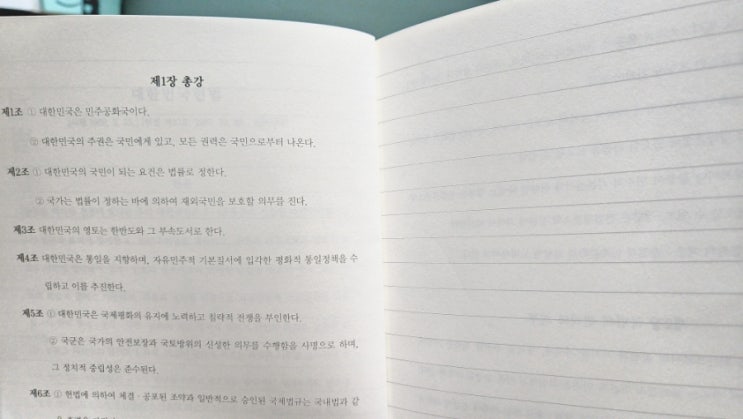 제1장 총강
제1조 ① 대한민국은 민주공화국이다.
② 대한민국의 주권은 국민에게 있고, 모든 권력은 국민으로부터 나온다.
제2조 ① 대한민국의 국민이 되는 요건은 법률로 정한다.
② 국가는 법률이 정하는 바에 의하여 재외국민을 보호할 의무를 진다.
제3조 대한민국의 영토는 한반도와 그 부속도서로 한다.
제4조 대한민국은 통일을 지향하며, 자유민주적 기본질서에 입각한 평화적 통일정책을 수
립하고 이를 추진한다.
제5조 ① 대한민국은 국제평화의 유지에 노력하고 침략적 전쟁을 부인한다.
② 국군은 국가의 안전보장과 국토방위의 신성한 의무를 수행함을 사명으로 하며,
그 정치적 중립성은 준수된다.
제6조 ① 헌법에 의하여 체결·공포된 조약과 일반적으로 승인된 국제법규는 국내법과 같